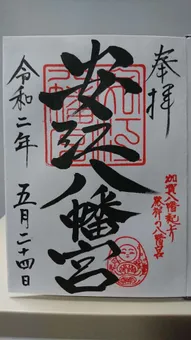 奉拝
加賀八幡起上り
発祥の八幡宮
安江八幡宮
令和二年
五月二十四日